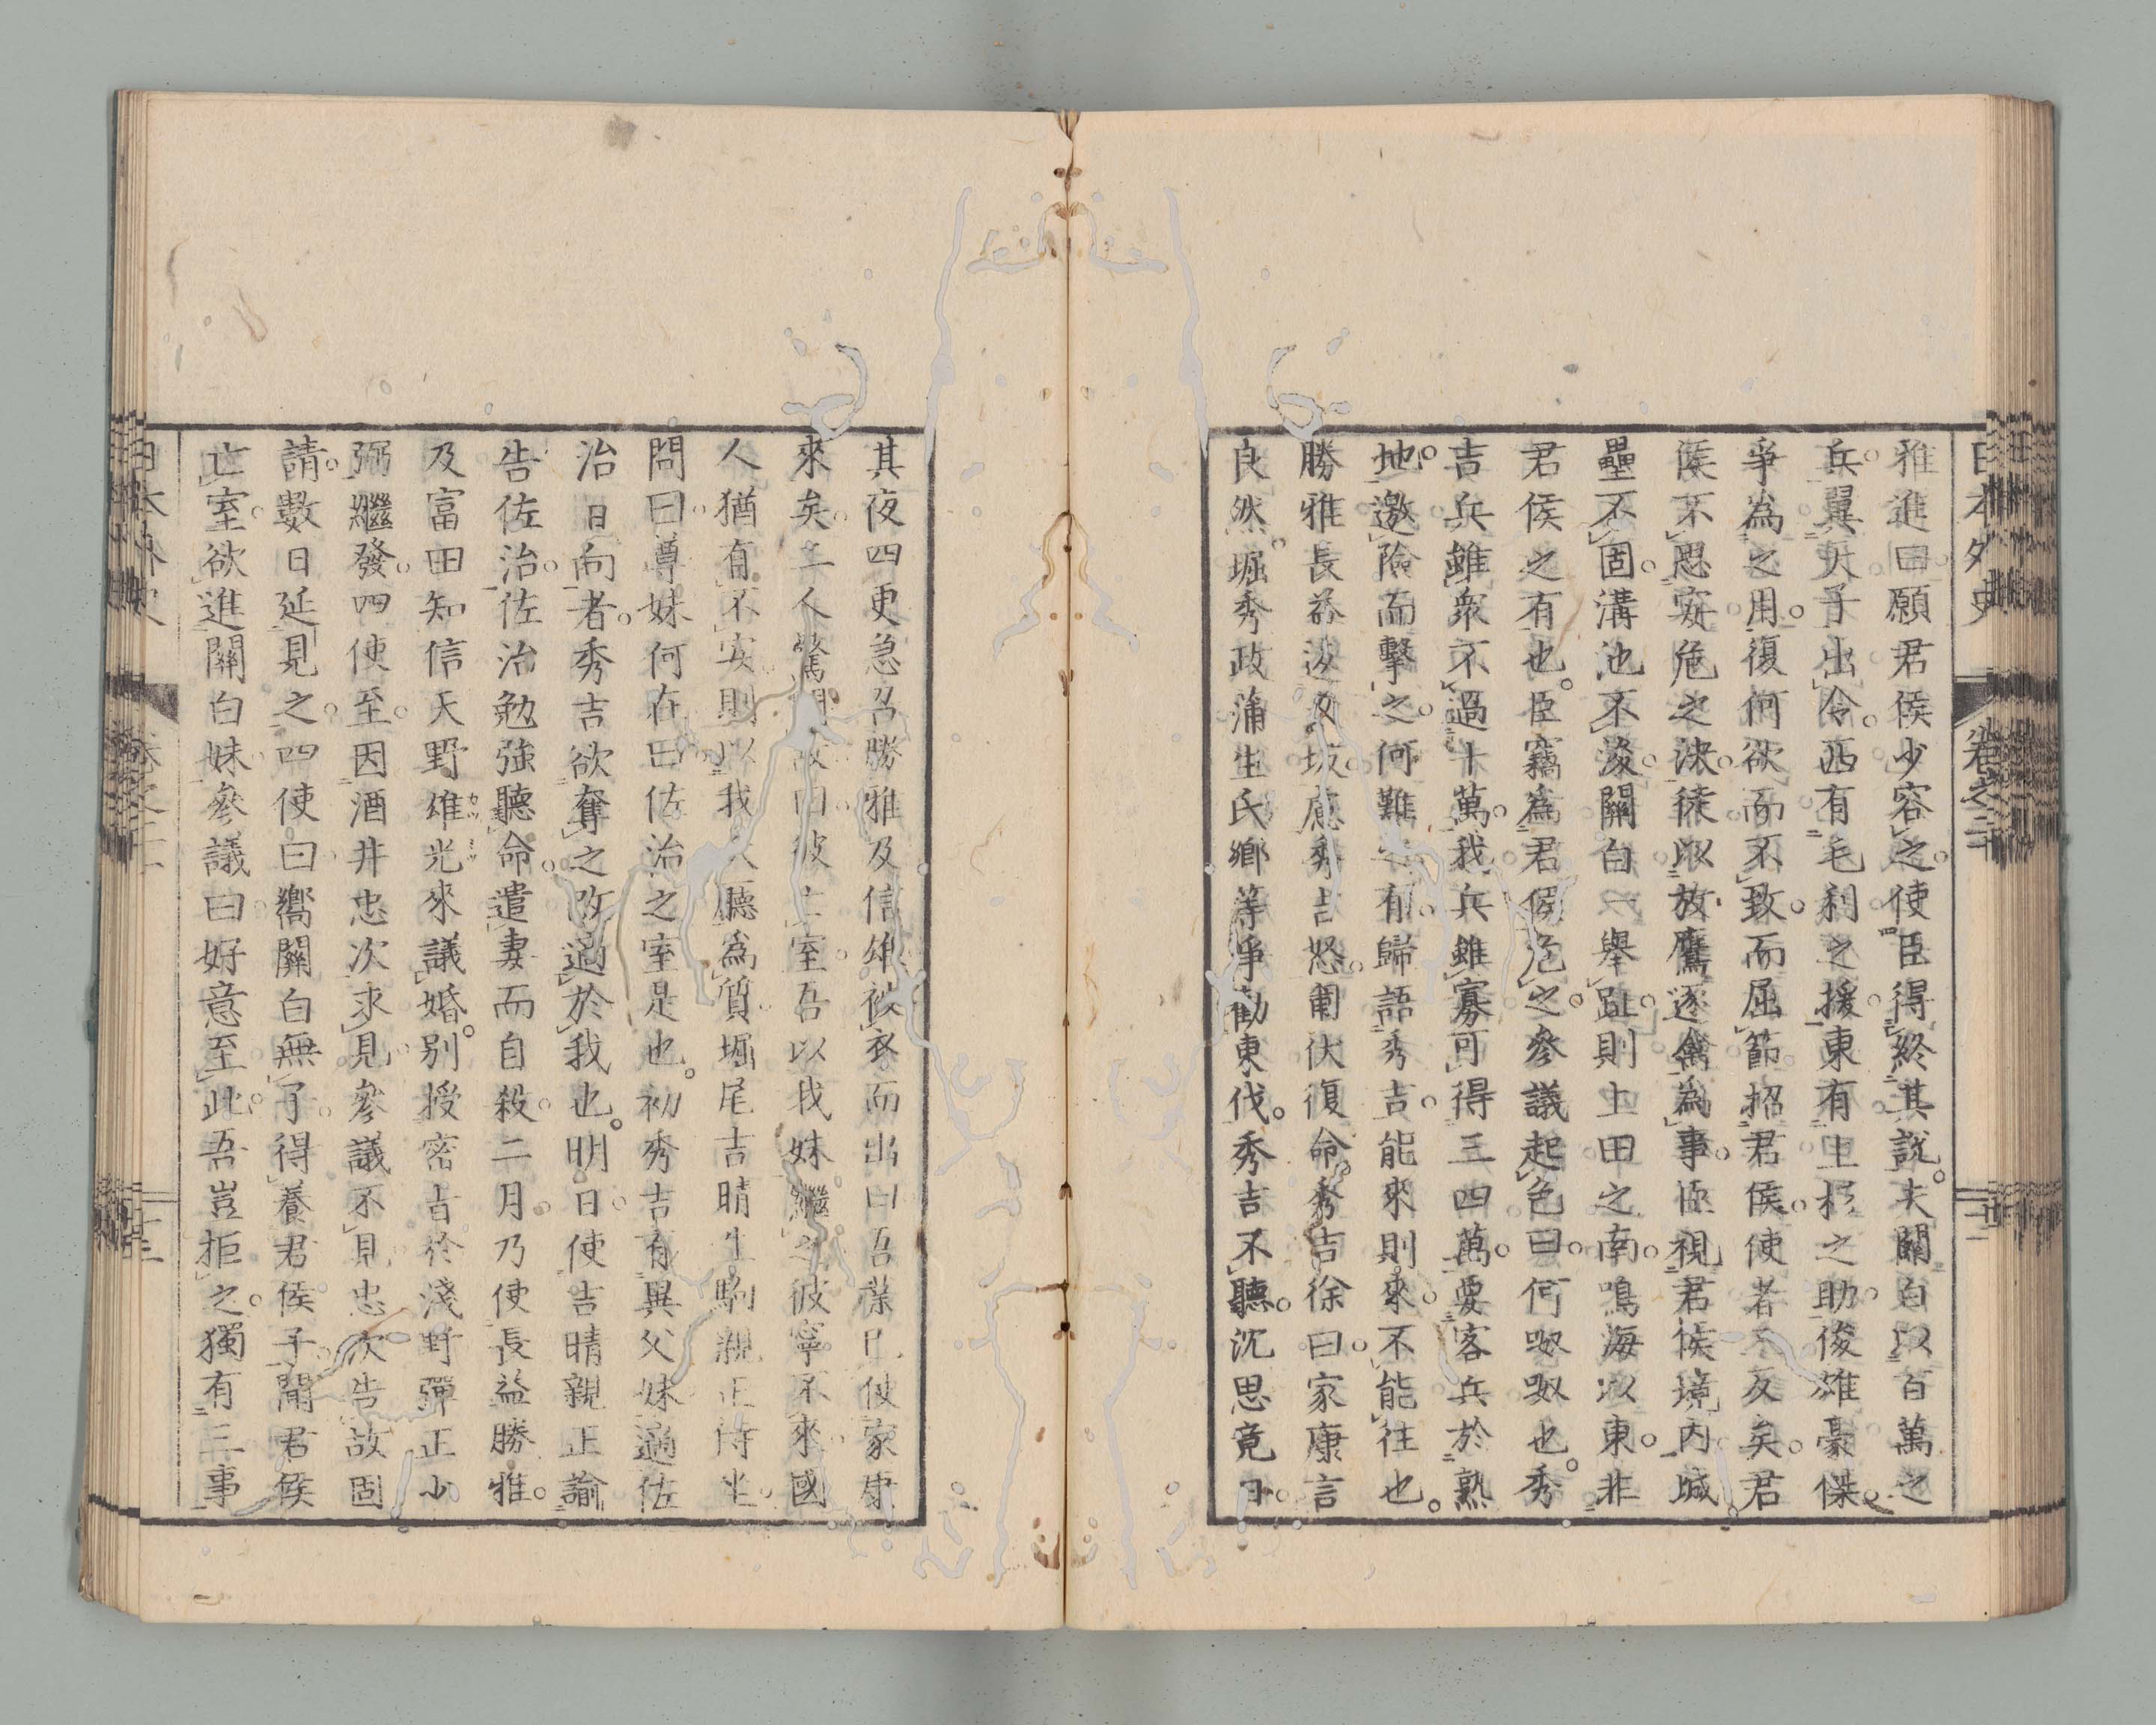 日本外史 卷之二十
雅進曰。願君侯少容之。使臣得終其說。夫關白以百萬之
兵。翼天子出令。西有毛利之援。東有上杉之助。俊雄豪傑。
爭為之用。復何欲而不致。而屈節招君侯。使者不反矣。君
侯不思安危之決。徒以放鷹逐禽為事。臣視君侯境內。城
壘不固。溝池不浚。關白一舉趾。則上田之南。鳴海以東。非
君侯之有也。臣竊為君侯危之。參議起色曰。何呶呶也。秀
吉兵雖衆不過十萬。我兵雖寡可得三四萬。要客兵於熟
地。邀險而擊之。何難之有。歸語秀吉。能來則來。不能往也。
勝雅長益汲及坂應秀吉怒。匍伏復命。秀吉徐曰。家康言
良然。堀秀政蒲生氏鄉等爭勸東伐。秀吉不聽。沉思竟日。
其夜四更急召勝雅及信雄被衣而出曰吾葉已使家康
來矣。二人驚問故。曰彼亡室。吾以我妹繼之。彼寧不來。國
人猶有不安。則以我大廳為質。堀尾吉晴生駒親正侍坐。
問曰。尊妹何在。曰佐治之室是也。初秀吉有異父妹適佐
治日向者。秀吉欲奪之改適於我也。明日使吉晴親正諭
告佐治。佐治勉強聽命。遣妻而自殺。二月。乃使長益勝雅。
及富田知信天野雄光來議婚。別授密旨於淺野彈正少
弼繼發。四使至。因酒井忠次求見。參議不見。忠次告故固
請。數日延見之。四使曰。嚮關白無子。得養君侯子。聞君侯
亡室。欲進關白妹。參議曰。好意至此。吾豈拒之。獨有三事